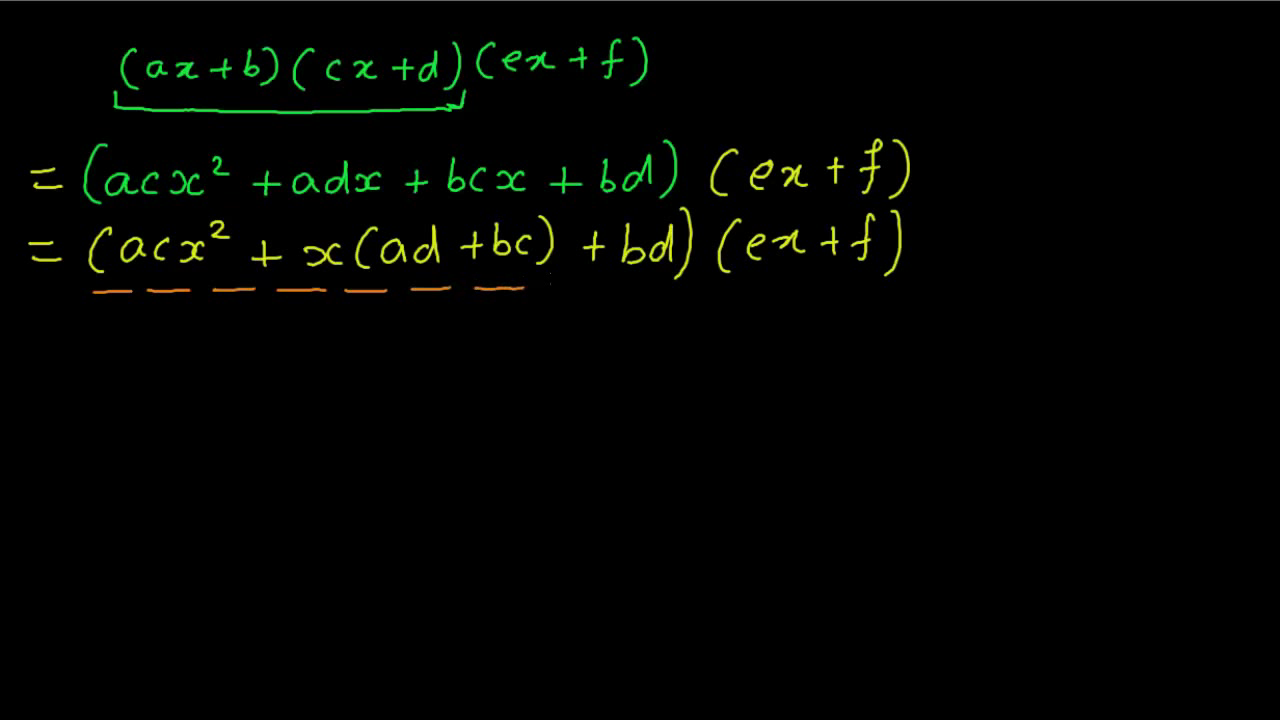 (ax+b)(cx+d)(ex+f)
= (acx² + adx + bcx + bd) (ex+f)
= (acx² + x(ad+bc) + bd) (ex+f)